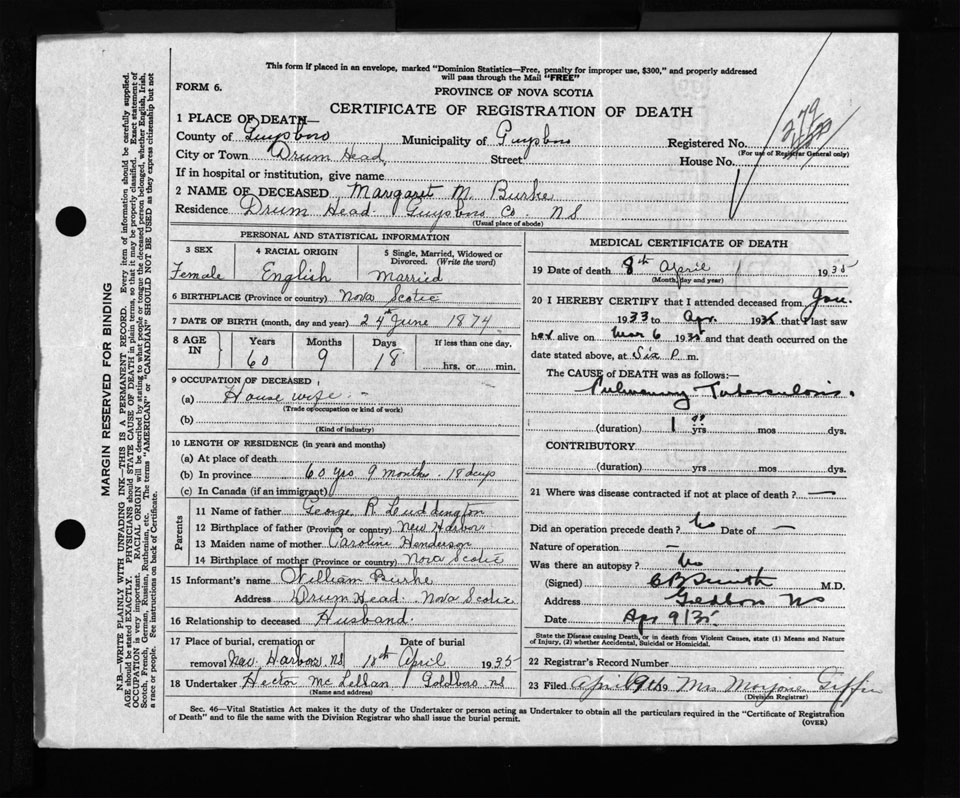 This form if placed in an envelope, marked "Dominion Statistics—Free, penalty for improper use, $300," and properly addressed
will pass through the Mail "FREE"
FORM 6.
PROVINCE OF NOVA SCOTIA
CERTIFICATE OF REGISTRATION OF DEATH
1 PLACE OF DEATH—
County of Guysboro Municipality of Guysboro Registered No.
(For use of Registrar General only)
City or Town Drum Head, Street House No.
If in hospital or institution, give name
2 NAME OF DECEASED Margaret M. Burke
Residence Drum Head Guysboro Co. NS
(Usual place of abode)
PERSONAL AND STATISTICAL INFORMATION
3 SEX 4 RACIAL ORIGIN 5 Single, Married, Widowed or
Divorced. (Write the word)
Female English Married
6 BIRTHPLACE (Province or country) Nova Scotia
7 DATE OF BIRTH (month, day and year) 24th June 1874
8 AGE IN Years Months Days If less than one day.
60 9 18 hrs. or min.
9 OCCUPATION OF DECEASED
(a) House wife -
(Trade or occupation or kind of work)
(b)
(Kind of industry)
10 LENGTH OF RESIDENCE (in years and months)
(a) At place of death
(b) In province 60 yrs 9 months 18 days
(c) In Canada (if an immigrant)
Parents
11 Name of father George R Luddington
12 Birthplace of father (Province or country) New Harbor
13 Maiden name of mother Caroline Henderson
14 Birthplace of mother (Province or country) Nova Scotia
15 Informant's name William Burke
Address Drum Head Nova Scotia
16 Relationship to deceased Husband
17 Place of burial, cremation or Date of burial
removal New Harbor NS 10th April 1935
18 Undertaker Hector McLellan Goldboro NS
(Name and address)
MEDICAL CERTIFICATE OF DEATH
19 Date of death 8th April 1935
(Month, day and year)
20 I HEREBY CERTIFY that I attended deceased from Jan.
1933 to Apr. 1935 that I last saw
her alive on Mar 6 1935 and that death occurred on the
date stated above, at Six P m.
The CAUSE of DEATH was as follows:—
Pulmonary Tuberculosis.
(duration) 1 yrs mos dys.
CONTRIBUTORY
(duration) yrs mos dys.
21 Where was disease contracted if not at place of death? —
Did an operation precede death? No Date of —
Nature of operation —
Was there an autopsy? No
(Signed) C B Smith M.D.
Address Goldboro NS
Date Apr 9/35
State the Disease causing Death, or in death from Violent Causes, state (1) Means and Nature
of Injury, (2) whether Accidental, Suicidal or Homicidal.
22 Registrar's Record Number
23 Filed April 9th 19 Mrs Marjorie Giffin
(Division Registrar)
Sec. 46—Vital Statistics Act makes it the duty of the Undertaker or person acting as Undertaker to obtain all the particulars required in the "Certificate of Registration
of Death" and to file the same with the Division Registrar who shall issue the burial permit.
(OVER)
MARGIN RESERVED FOR BINDING
N.B.—WRITE PLAINLY WITH UNFADING INK—THIS IS A PERMANENT RECORD. Every item of information should be carefully supplied.
AGE should be stated EXACTLY. PHYSICIANS should STATE CAUSE OF DEATH in plain terms, so that it may be properly classified. Exact statement of
OCCUPATION is very important. RACIAL ORIGIN will be described by stating to what people or tongue the deceased person belonged, whether English, Irish,
Scotch, French, German, Russian, Ruthenian, etc. The terms "AMERICAN" or "CANADIAN" SHOULD NOT BE USED as they express citizenship but not
a race or people. See instructions on back of Certificate.